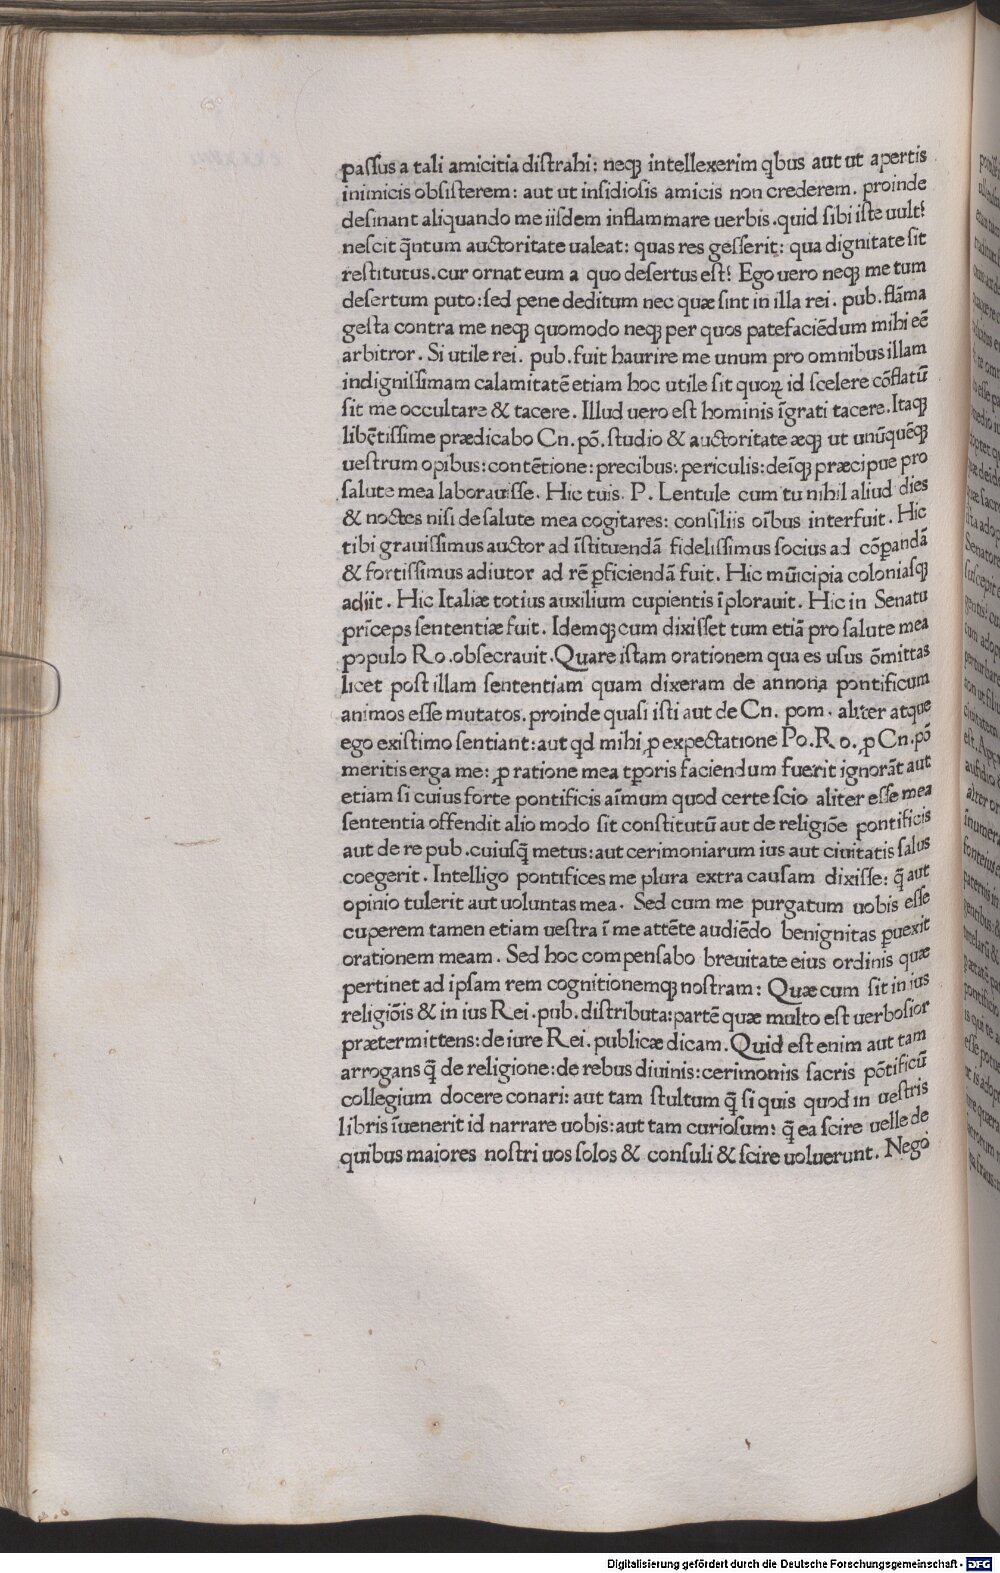 passus a tali amicitia distrahi: neqꝫ intellexerim q̇bus aut ut apertis
inimicis obsisterem: aut ut insidiosis amicis non crederem. proinde
desinant aliquando me iisdem inflammare uerbis. quid sibi iste uult?
nescit q̄ntum auctoritate ualeat: quas res gesserit: qua dignitate sit
restitutus. cur ornat eum a quo desertus est? Ego uero neqꝫ me tum
desertum puto: sed pene deditum nec quæ sint in illa rei. pub. flāma
gesta contra me neqꝫ quomodo neqꝫ per quos patefaciēdum mihi eē
arbitror. Si utile rei. pub. fuit haurire me unum pro omnibus illam
indignissimam calamitatē etiam hoc utile sit quoꝝ id scelere cōflatū
sit me occultare & tacere. Illud uero est hominis īgrati tacere. Itaqꝫ
libētissime prædicabo Cn. pō. studio & auctoritate æqꝫ ut unūquēqꝫ
uestrum opibus: contētione: precibus: periculis: deīqꝫ præcipue pro
salute mea laborauisse. Hic tuis. P. Lentule cum tu nihil aliud dies
& noctes nisi de salute mea cogitares: consiliis oībus interfuit. Hic
tibi grauissimus auctor ad īstituendā fidelissimus socius ad cōꝑandā
& fortissimus adiutor ad rē ꝑficiendā fuit. Hic mūicipia coloniasqꝫ
adiit. Hic Italiæ totius auxilium cupientis īplorauit. Hic in Senatu
prīceps sententiæ fuit. Idemqꝫ cum dixisset tum etiā pro salute mea
populo Ro. obsecrauit. Quare istam orationem qua es usus ōmittas
licet post illam sententiam quam dixeram de annona pontificum
animos esse mutatos. proinde quasi isti aut de Cn. pom. aliter atque
ego existimo sentiant: aut qd mihi ꝓ expectatione Po. Ro. ꝓ Cn. pō
meritis erga me: ꝓ ratione mea tꝑoris faciendum fuerit ignorāt aut
etiam si cuius forte pontificis aīmum quod certe scio aliter esse mea
sententia offendit alio modo sit constitutū aut de religiōe pontificis
aut de re pub. cuiusq̄ metus: aut cerimoniarum ius aut ciuitatis salus
coegerit. Intelligo pontifices me plura extra causam dixisse: q̄ aut
opinio tulerit aut uoluntas mea. Sed cum me purgatum uobis esse
cuperem tamen etiam uestra ī me attēte audiēdo benignitas ꝓuexit
orationem meam. Sed hoc compensabo breuitate eius ordinis quæ
pertinet ad ipsam rem cognitionemqꝫ nostram: Quæ cum sit in ius
religiōis & in ius Rei. pub. distributa: partē quæ multo est uerbosior
prætermittens: de iure Rei. publicæ dicam. Quid est enim aut tam
arrogans q̄ de religione: de rebus diuinis: cerimoniis sacris pōtificū
collegium docere conari: aut tam stultum q̄ si quis quod in uestris
libris īuenerit id narrare uobis: aut tam curiosum: q̄ ea scire uelle de
quibus maiores nostri uos solos & consuli & scire uoluerunt. Nego
Digitalisierung gefördert durch die Deutsche Forschungsgemeinschaft - DFG